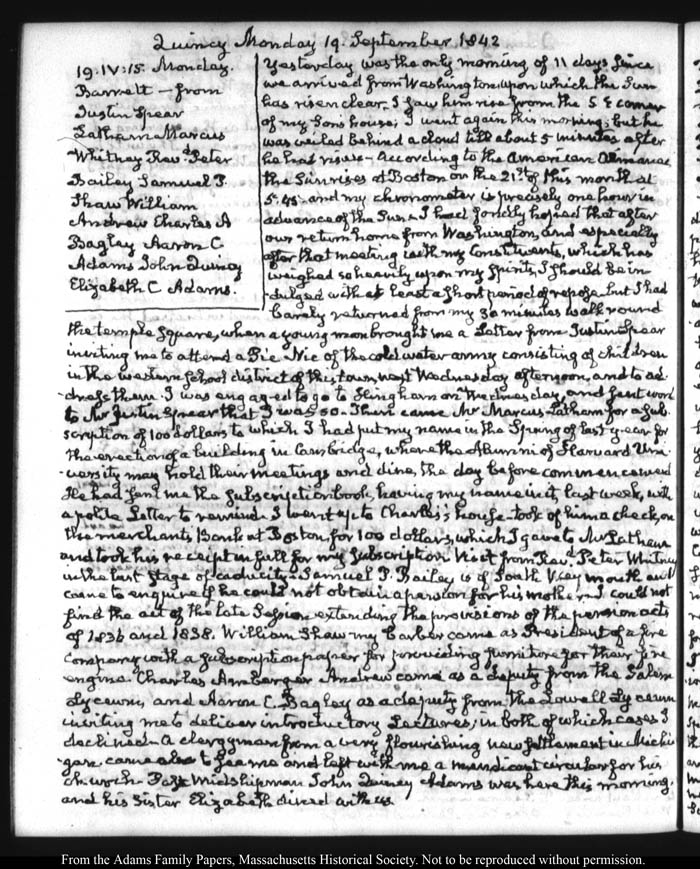 Quincy Monday 19. September 1842
19. IV:15. Monday.
Barrett — from
Justin Spear
Latham Marcus
Whitney Revd. Peter
Bailey Samuel P.
Shaw William
Andrew Charles A
Bagley Aaron C.
Adams John Quincy
Elizabeth C. Adams.
Yesterday was the only morning of 11 days since
we arrived from Washington upon which the Sun
has risen clear. I saw him rise from the S E corner
of my Son's house; I went again this morning; but he
was veiled behind a cloud till about 5 minutes after
he had risen — According to the American Almanac
the Sun rises at Boston on the 21st. of this month at
5.48 and my chronometer is precisely one hour in
advance of the Sun. I had fondly hoped that after
our return home from Washington, and especially
after that meeting with my Constituents, which has
weighed so heavily upon my Spirits, I should be in-
dulged with at least a short period of repose but I had
barely returned from my 30 minutes walk round
the temple Square, when a young man brought me a Letter from Justin Spear
inviting me to attend a Pic Nic of the cold water army consisting of children
in the western School district of this town, next Wednesday afternoon, and to ad-
dress them. I was engaged to go to Hingham on Wednesday, and sent word
to Mr Justin Spear that I was so — Then came Mr Marcus Latham for a sub-
scription of 100 dollars to which I had put my name in the Spring of last year for
the erection of a building in Cambridge, where the Alumni of Harvard Uni-
versity may hold their meetings and dine, the day before commencement
He had sent me the subscription book, having my name in it, last week, with
a polite Letter to remind. I went up to Charles's house took of him a check, on
the merchants Bank at Boston for 100 dollars, which I gave to Mr Latham
and took his receipt in full for my Subscription. Visit from Revd. Peter Whitney
in the last stage of caducity — Samuel P. Bailey is of South Weymouth and
came to enquire if he could not obtain a pension for his mother. I could not
find the act of the late Session extending the provisions of the pension acts
of 1836 and 1838. William Shaw my barber came as President of a fire
company with a subscription paper for providing furniture for their fire
engine. Charles Andrew came as a deputy from the Salem
Lyceum, and Aaron C. Bagley as a deputy from the Lowell Lyceum
inviting me to deliver introductory Lectures; in both of which cases I
declined — A clergyman from a very flourishing new settlement in Michi-
gan came also to see me and left with me a mendicant circular for his
church Past Midshipman John Quincy Adams was here this morning,
and his Sister Elizabeth dined with us
From the Adams Family Papers, Massachusetts Historical Society. Not to be reproduced without permission.